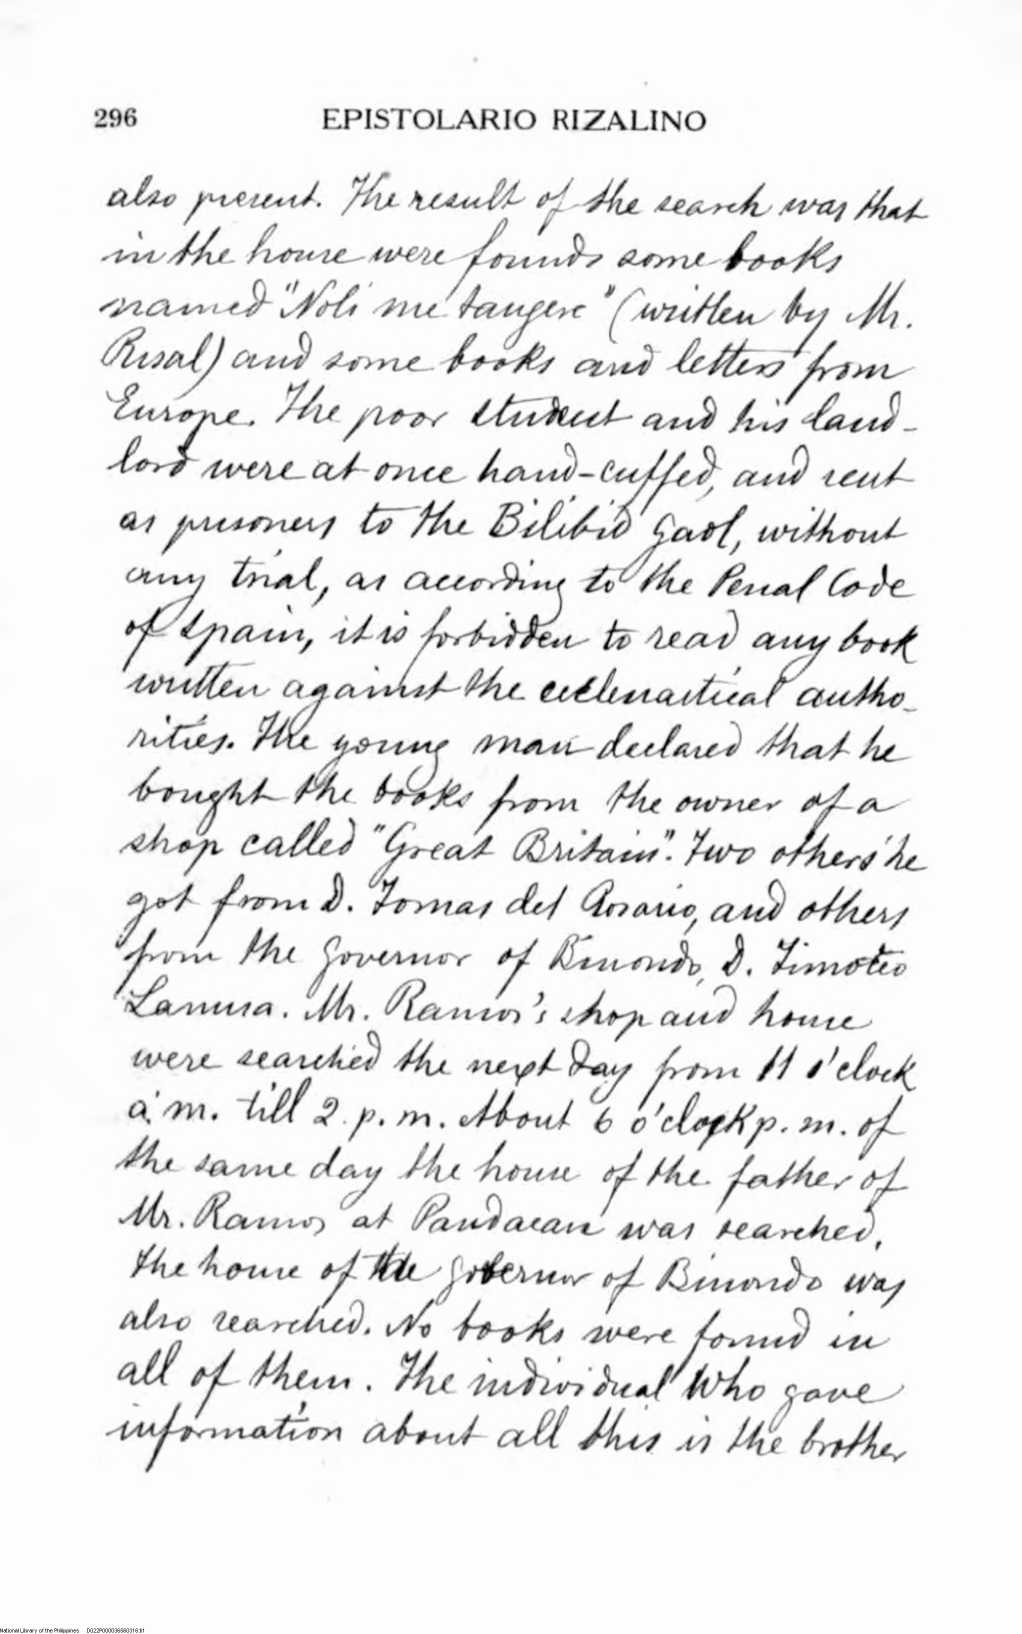 296 EPISTOLARIO RIZALINO
also present. The result of the search was that
in the house were founds some books
named "Noli me tangere" (written by Mr.
Risal) and some books and letters from
Europe. The poor student and his land-
lord were at once hand-cuffed, and sent
as prisoners to the Bilibid Gaol, without
any trial, as according to the Penal Code
of Spain, it is forbidden to read any book
written against the ecclesiastical autho-
rities. The young man declared that he
bought the books from the owner of a
shop called "Great Britain". Two others he
got from D. Tomas del Rosario, and others
from the Governor of Binondo, D. Timoteo
Lanusa. Mr. Ramos's shop and house
were searched the next day from 11 o'clock
a. m. till 2 p. m. About 6 o'clock p. m. of
the same day the house of the father of
Mr. Ramos at Pandacan was searched.
The house of the Governor of Binondo was
also searched. No books were found in
all of them. The individual who gave
information about all this is the brother
National Library of the Philippines